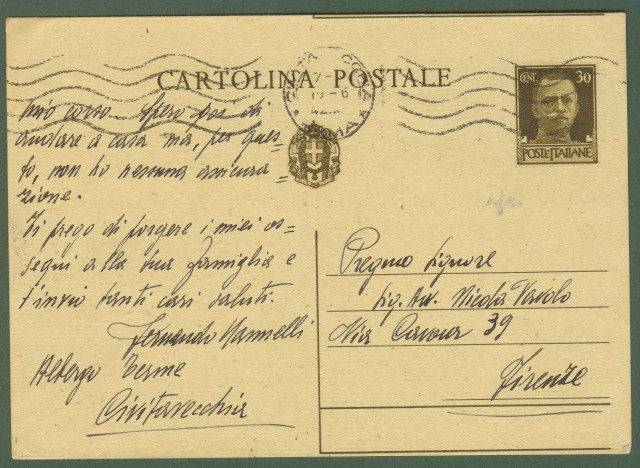 CARTOLINA POSTALE
CENT. 30
POSTE ITALIANE
19 - 6
mio corso. Spero pos di
andare a casa ma, per ques=
to, non ho nessuna assicura=
zione.
Ti prego di porgere i miei os=
sequi alla tua famiglia e
t'invio tanti cari saluti.
Fernando Mannelli
Albergo Terme
Civitavecchia
Pregmo Signore
Sig. Avv. Nicola
Via Cavour 39
Firenze